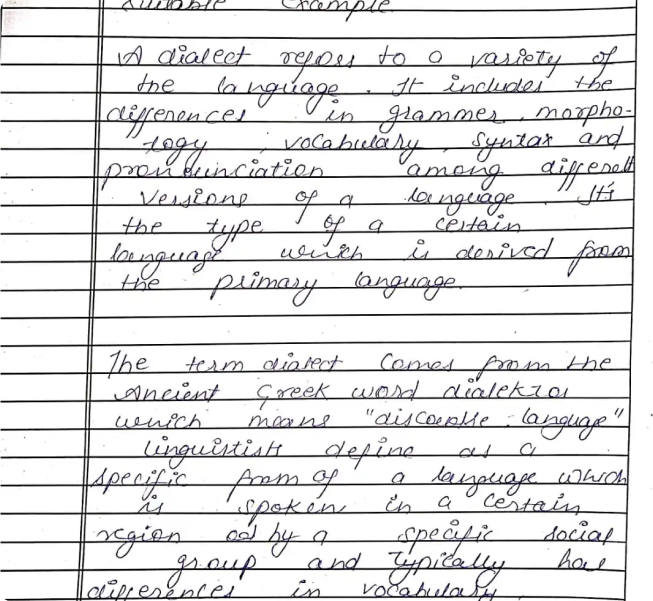 Suitable Example
A dialect refers to a variety of
the language. It includes the
differences in grammer, morpho-
logy, vocabulary, syntax and
pronounciation among different
versions of a language. It's
the type of a certain
language which is derived from
the primary language.
The term dialect comes from the
Ancient Greek word dialektos
which means "discourse - language"
linguistists define as a
specific from of a language which
is spoken in a certain
region or by a specific social
group and typically has
differences in vocabulary